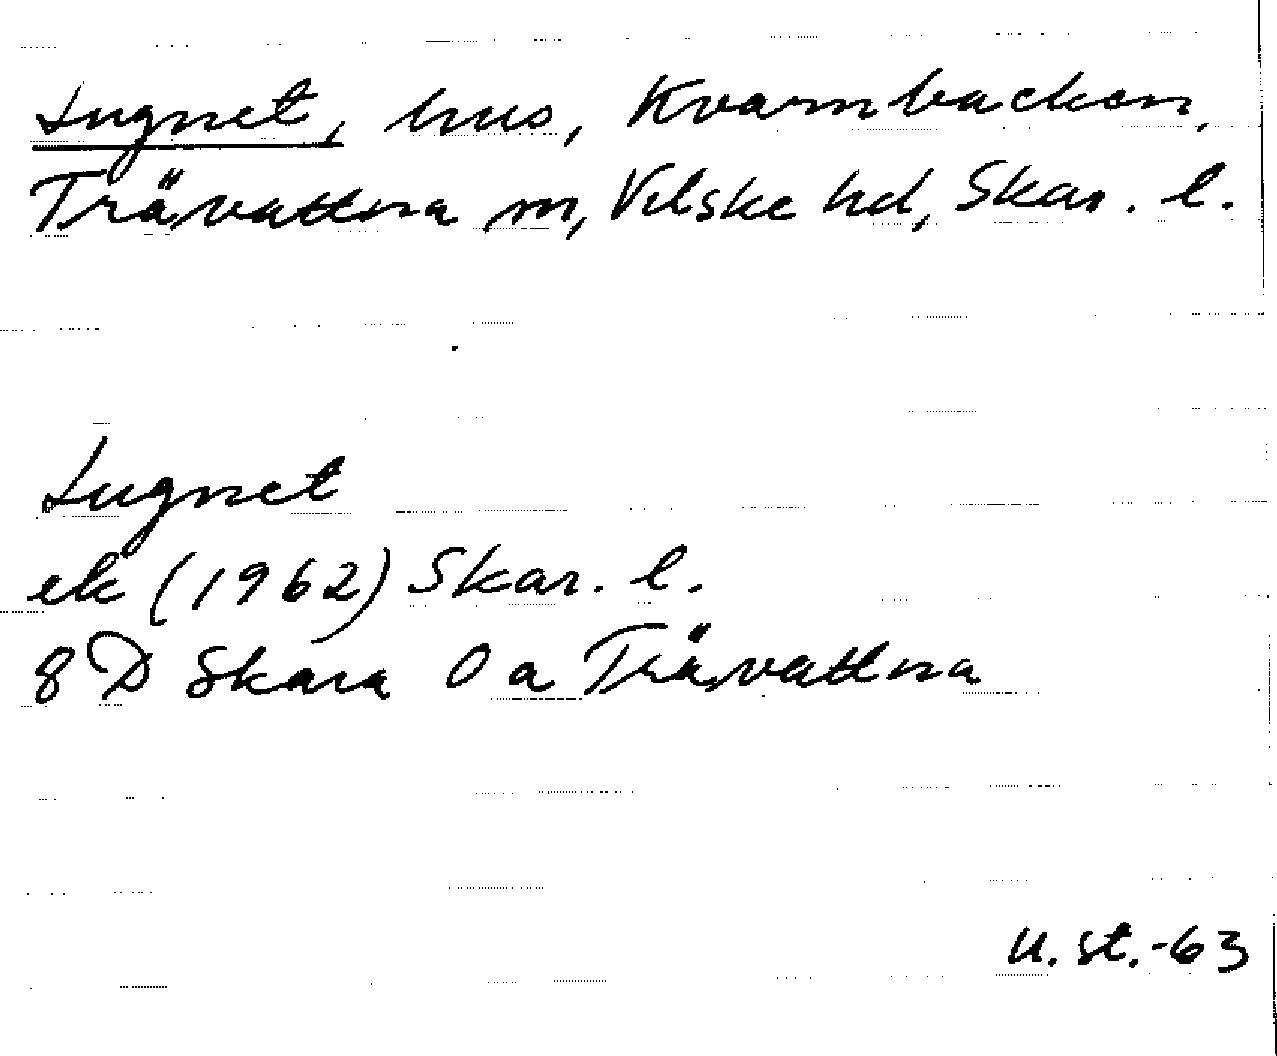 Lugnet, hus, Kvarnbacken,
Trävattna sn, Vilske hd, Skar. l.
Lugnet
ek (1962) Skar. l.
8 D Skara 0 a Trävattna
U. st. -63